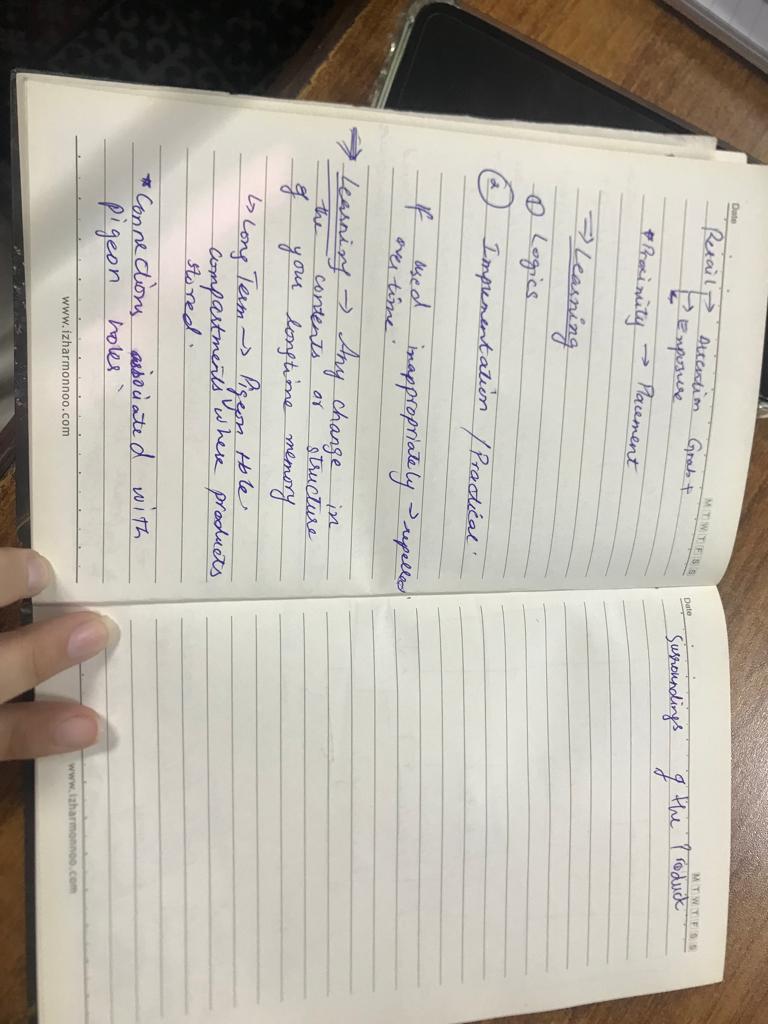 Date
M T W T F S S
Retail → Attention Grab +
→ Exposure
* Proximity → Placement
⇒ Learning
① Logics
② Implementation / Practical.
If used inappropriately → repelled
over time.
⇒ Learning → Any change in
the contents or structure
of your longtime memory
↳ Long Term → Pigeon Hole.
compartments where products
stored.
* Connections associated with
pigeon holes.
www.izharmonnoo.com
Date
M T W T F S S
Surroundings of the Product
www.izharmonnoo.com